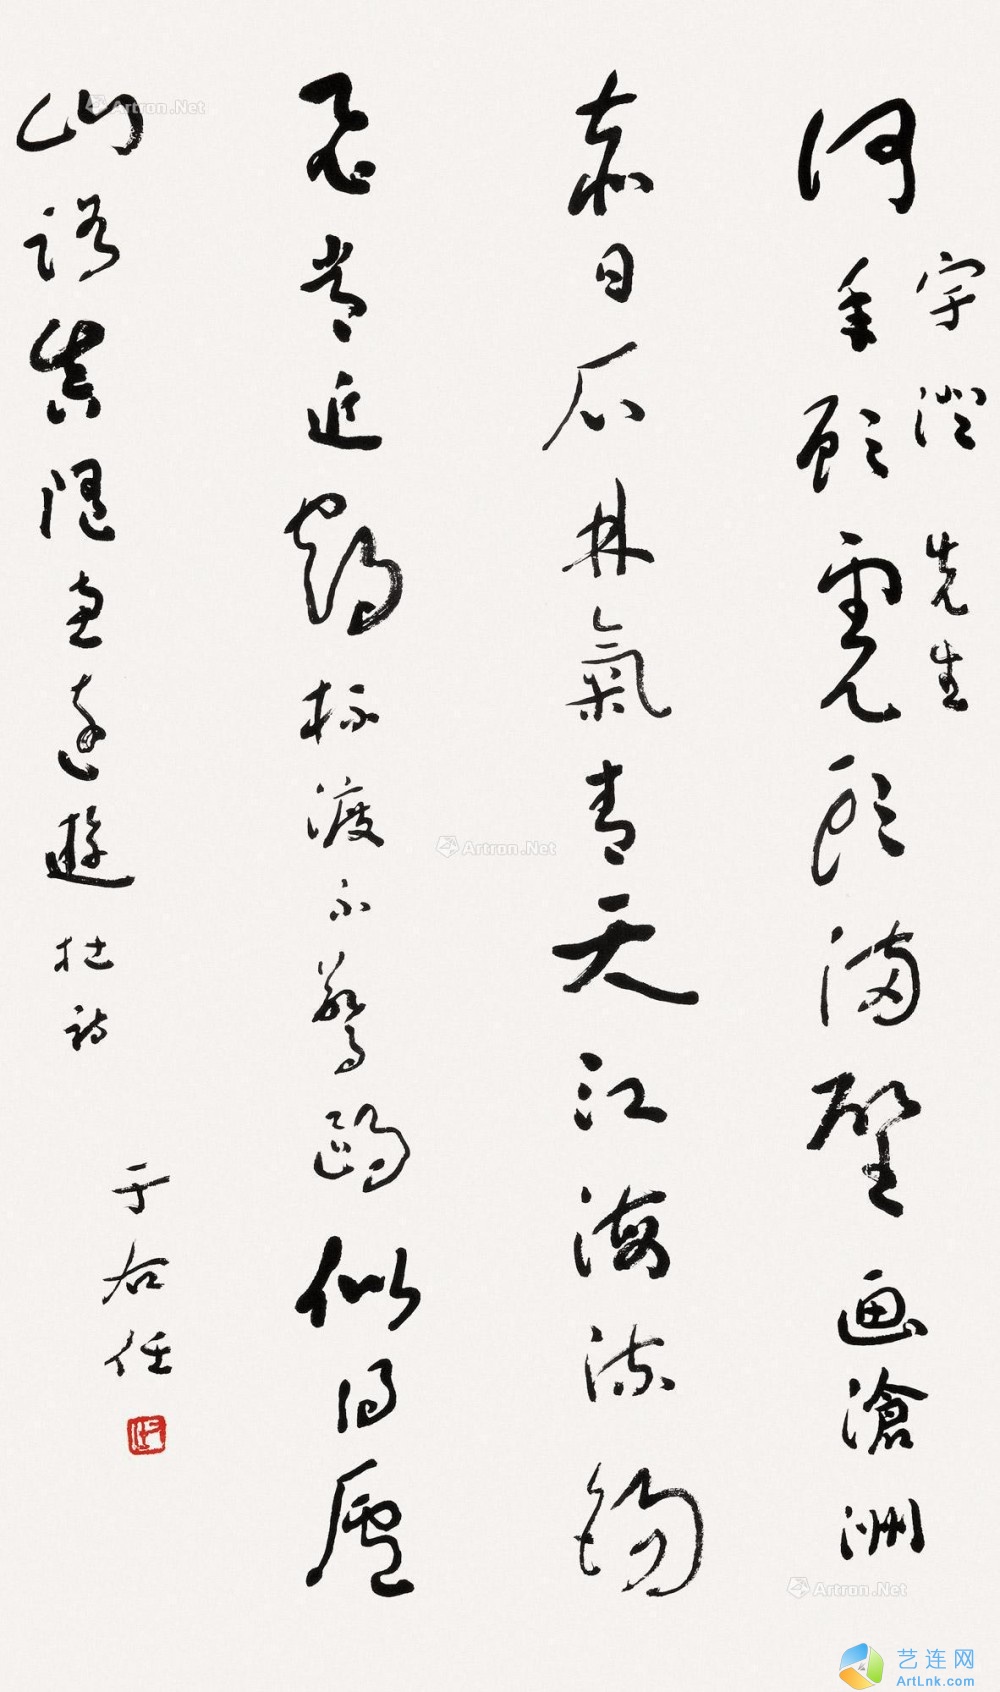 宇澄先生
何年顧虎頭滿壁画滄洲
赤日石林氣青天江海流錫
飛常近鶴杯渡不驚鷗似得廬
山路真隨惠遠遊杜詩
于右任
Artron.Net
Artron.Net
Artron.Net
艺连网
ArtLnk.com